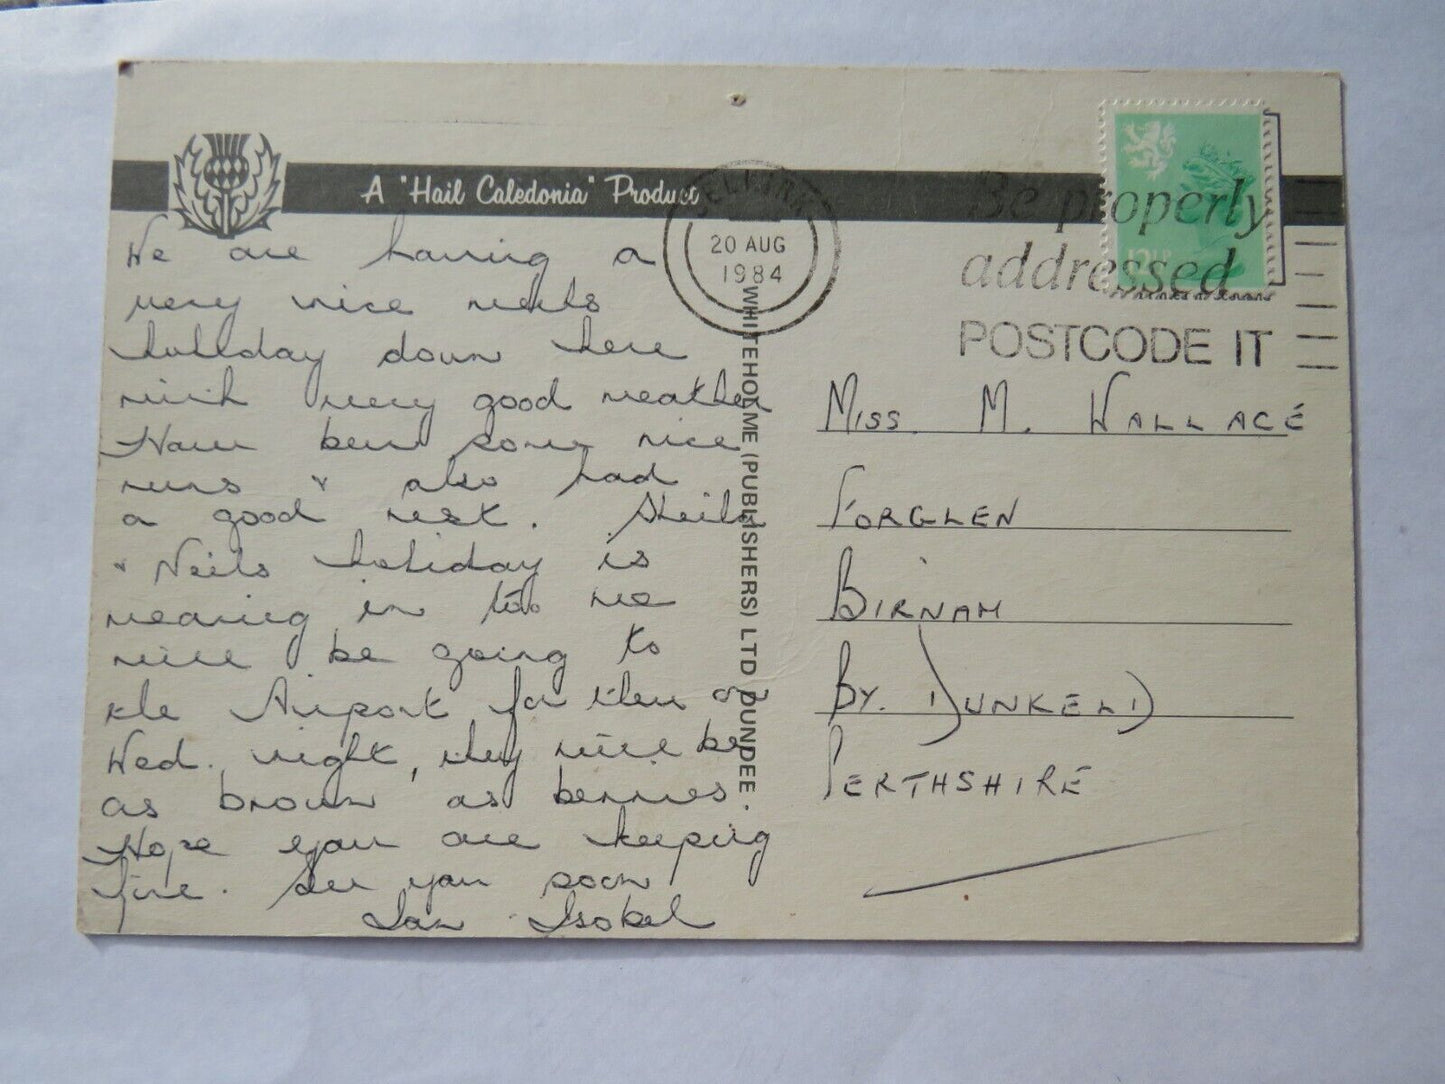 A "Hail Caledonia" Product
SELKIRK
20 AUG
1984
Be properly
addressed
POSTCODE IT
12½P
WHITEHOLME (PUBLISHERS) LTD DUNDEE
We are having a
very nice weeks
holiday down here
with very good weather
Have been some nice
runs & also had
a good rest. Sheila
& Neils holiday is
wearing in too we
will be going to
the Airport for them on
Wed. night, they will be
as brown as berries.
Hope you are keeping
fine. See you soon
Ian Isobel
MISS. M. WALLACE
FORGLEN
BIRNAM
BY. DUNKELD
PERTHSHIRE